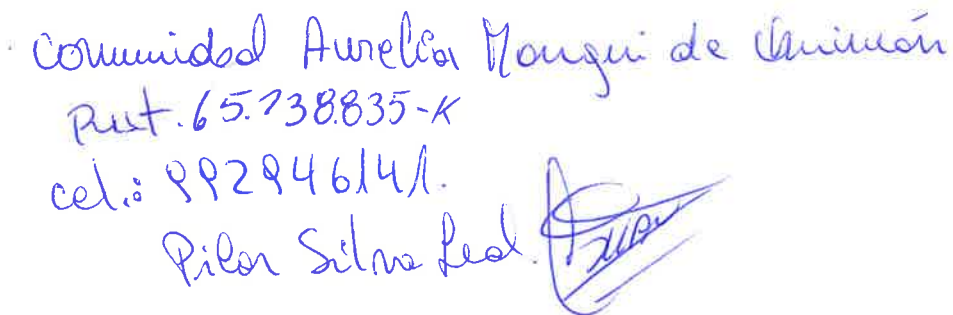 Comunidad Aurelia Manqui de Quillón
Rut. 65.138.835-K
cel.: 992946141.
Pilar Silva Leal.